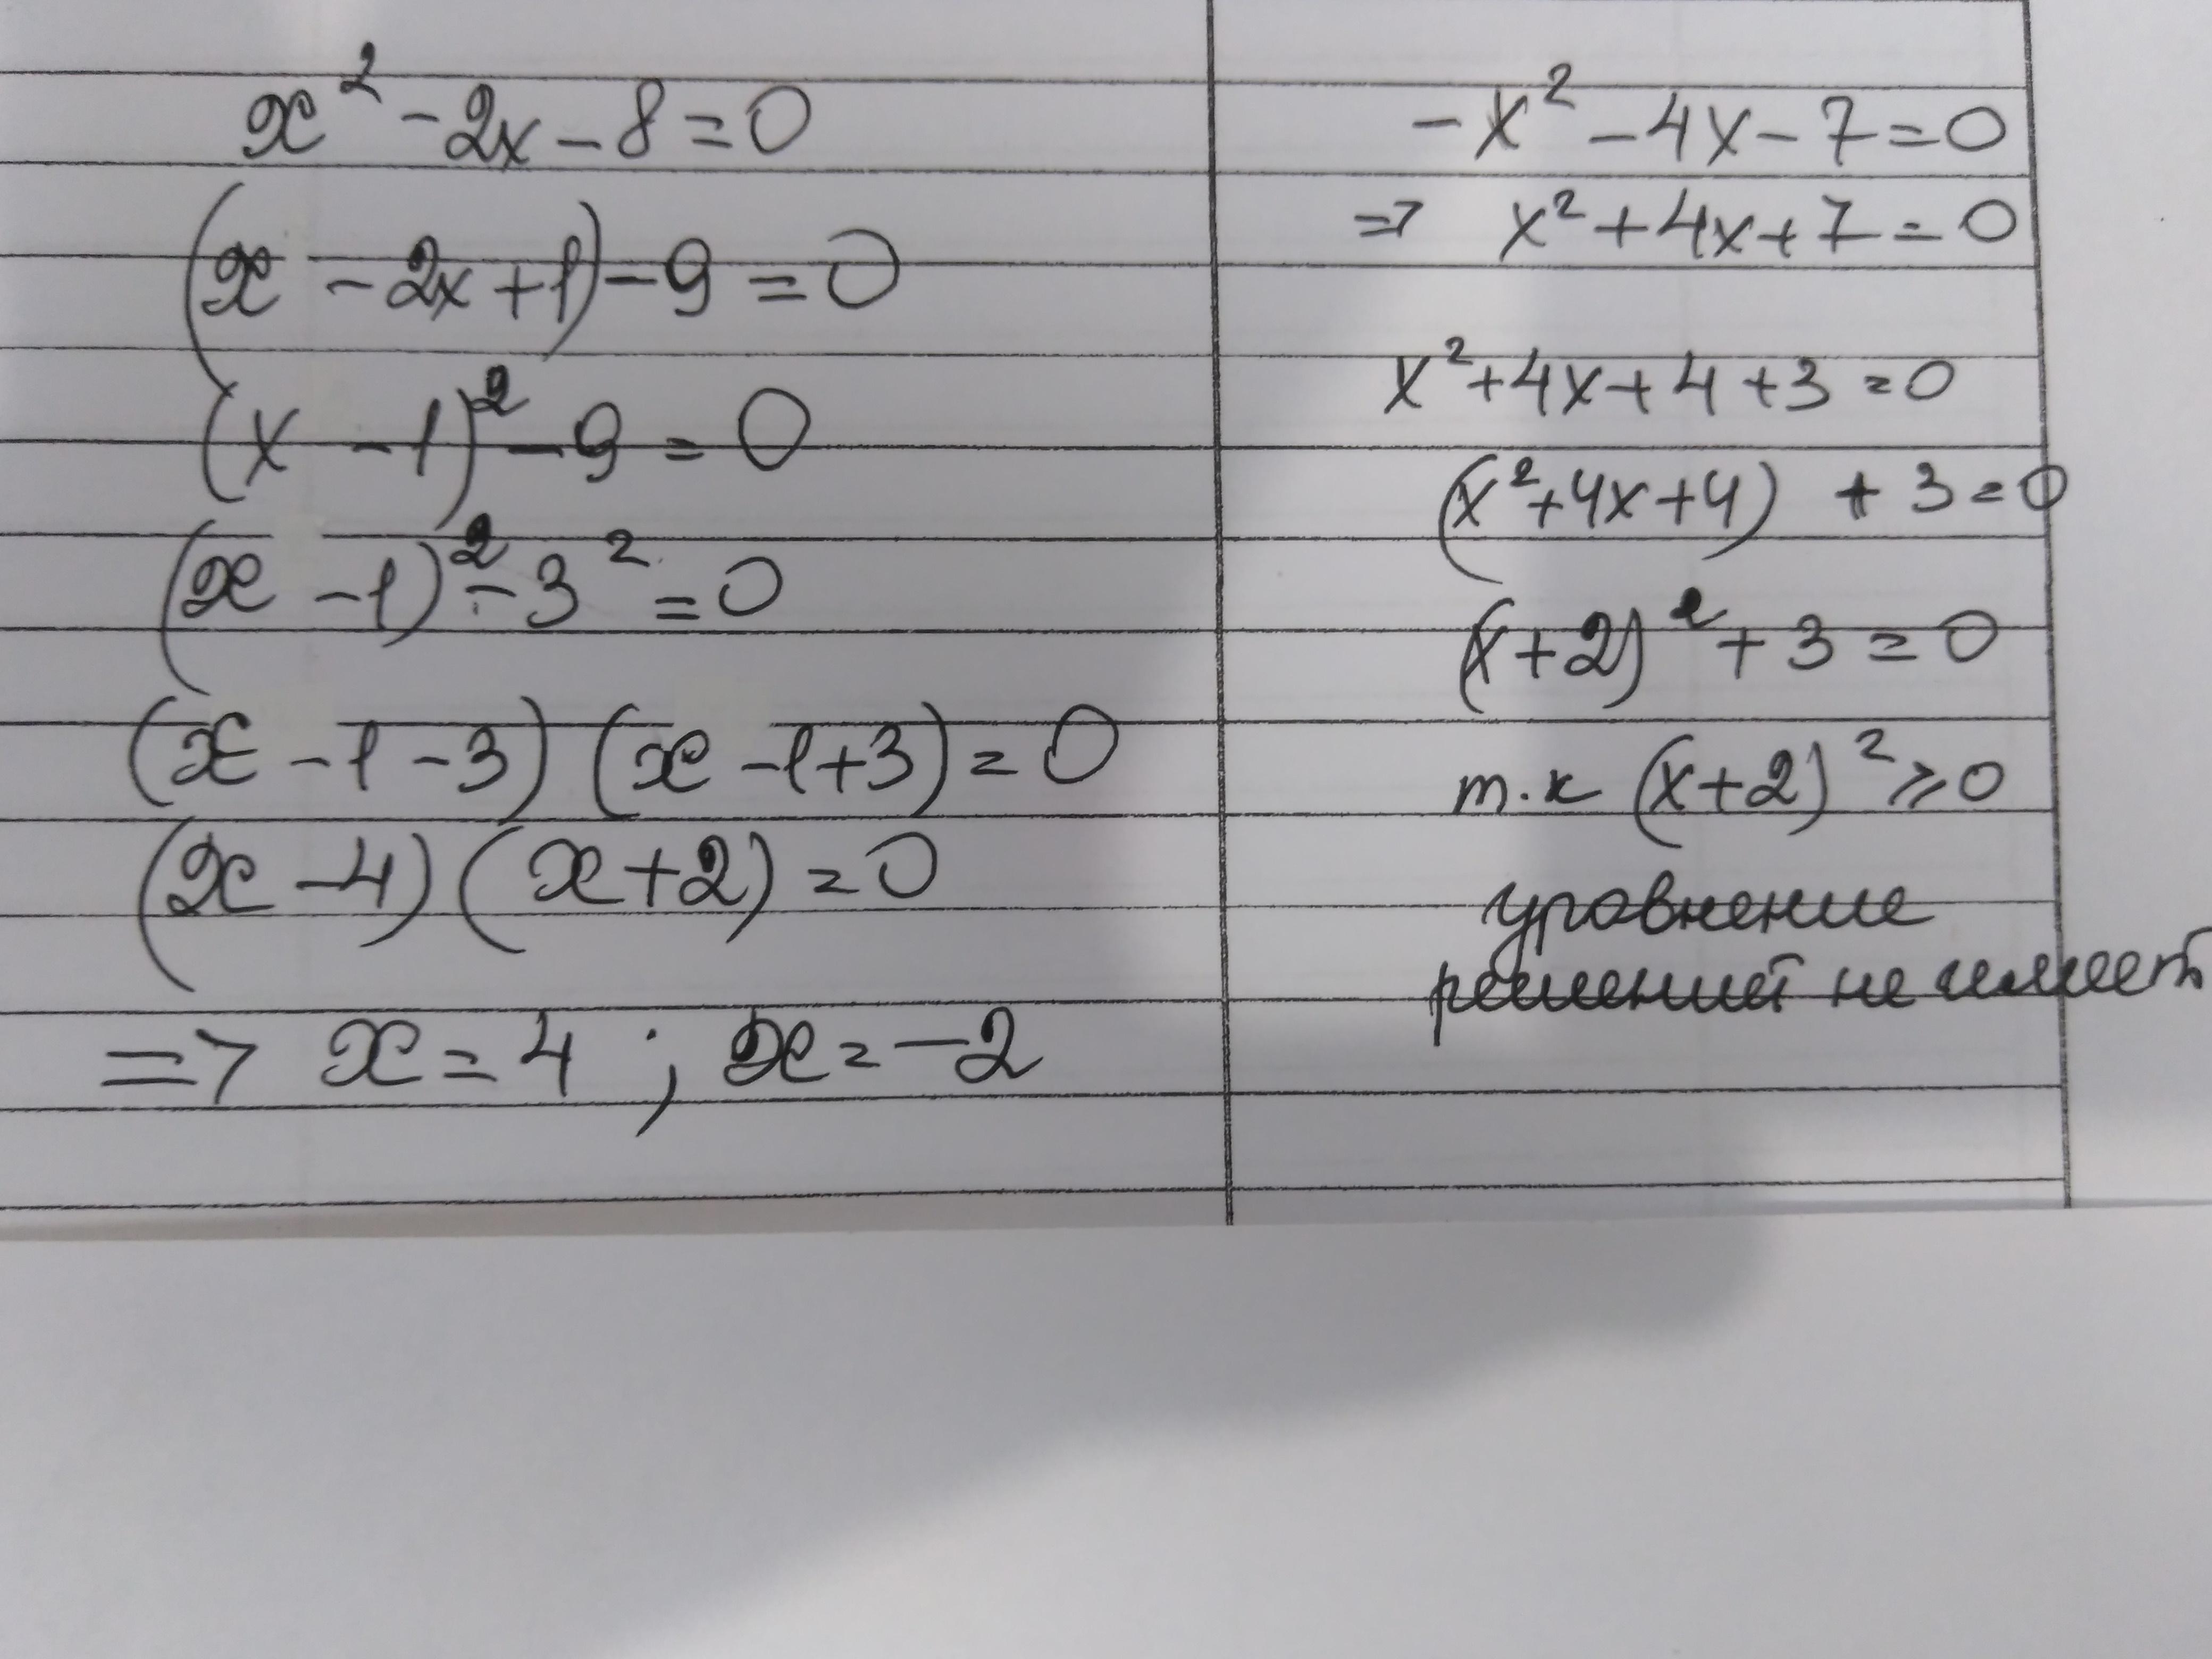 x² - 2x - 8 = 0
(x - 2x + 1) - 9 = 0
(x - 1)² - 9 = 0
(x - 1)² - 3² = 0
(x - 1 - 3) (x - 1 + 3) = 0
(x - 4) (x + 2) = 0
=> x = 4 ; x = -2
- x² - 4x - 7 = 0
=> x² + 4x + 7 = 0
x² + 4x + 4 + 3 = 0
(x² + 4x + 4) + 3 = 0
(x + 2)² + 3 = 0
т.к (x + 2)² ⩾ 0
уровнение
решений не имеет